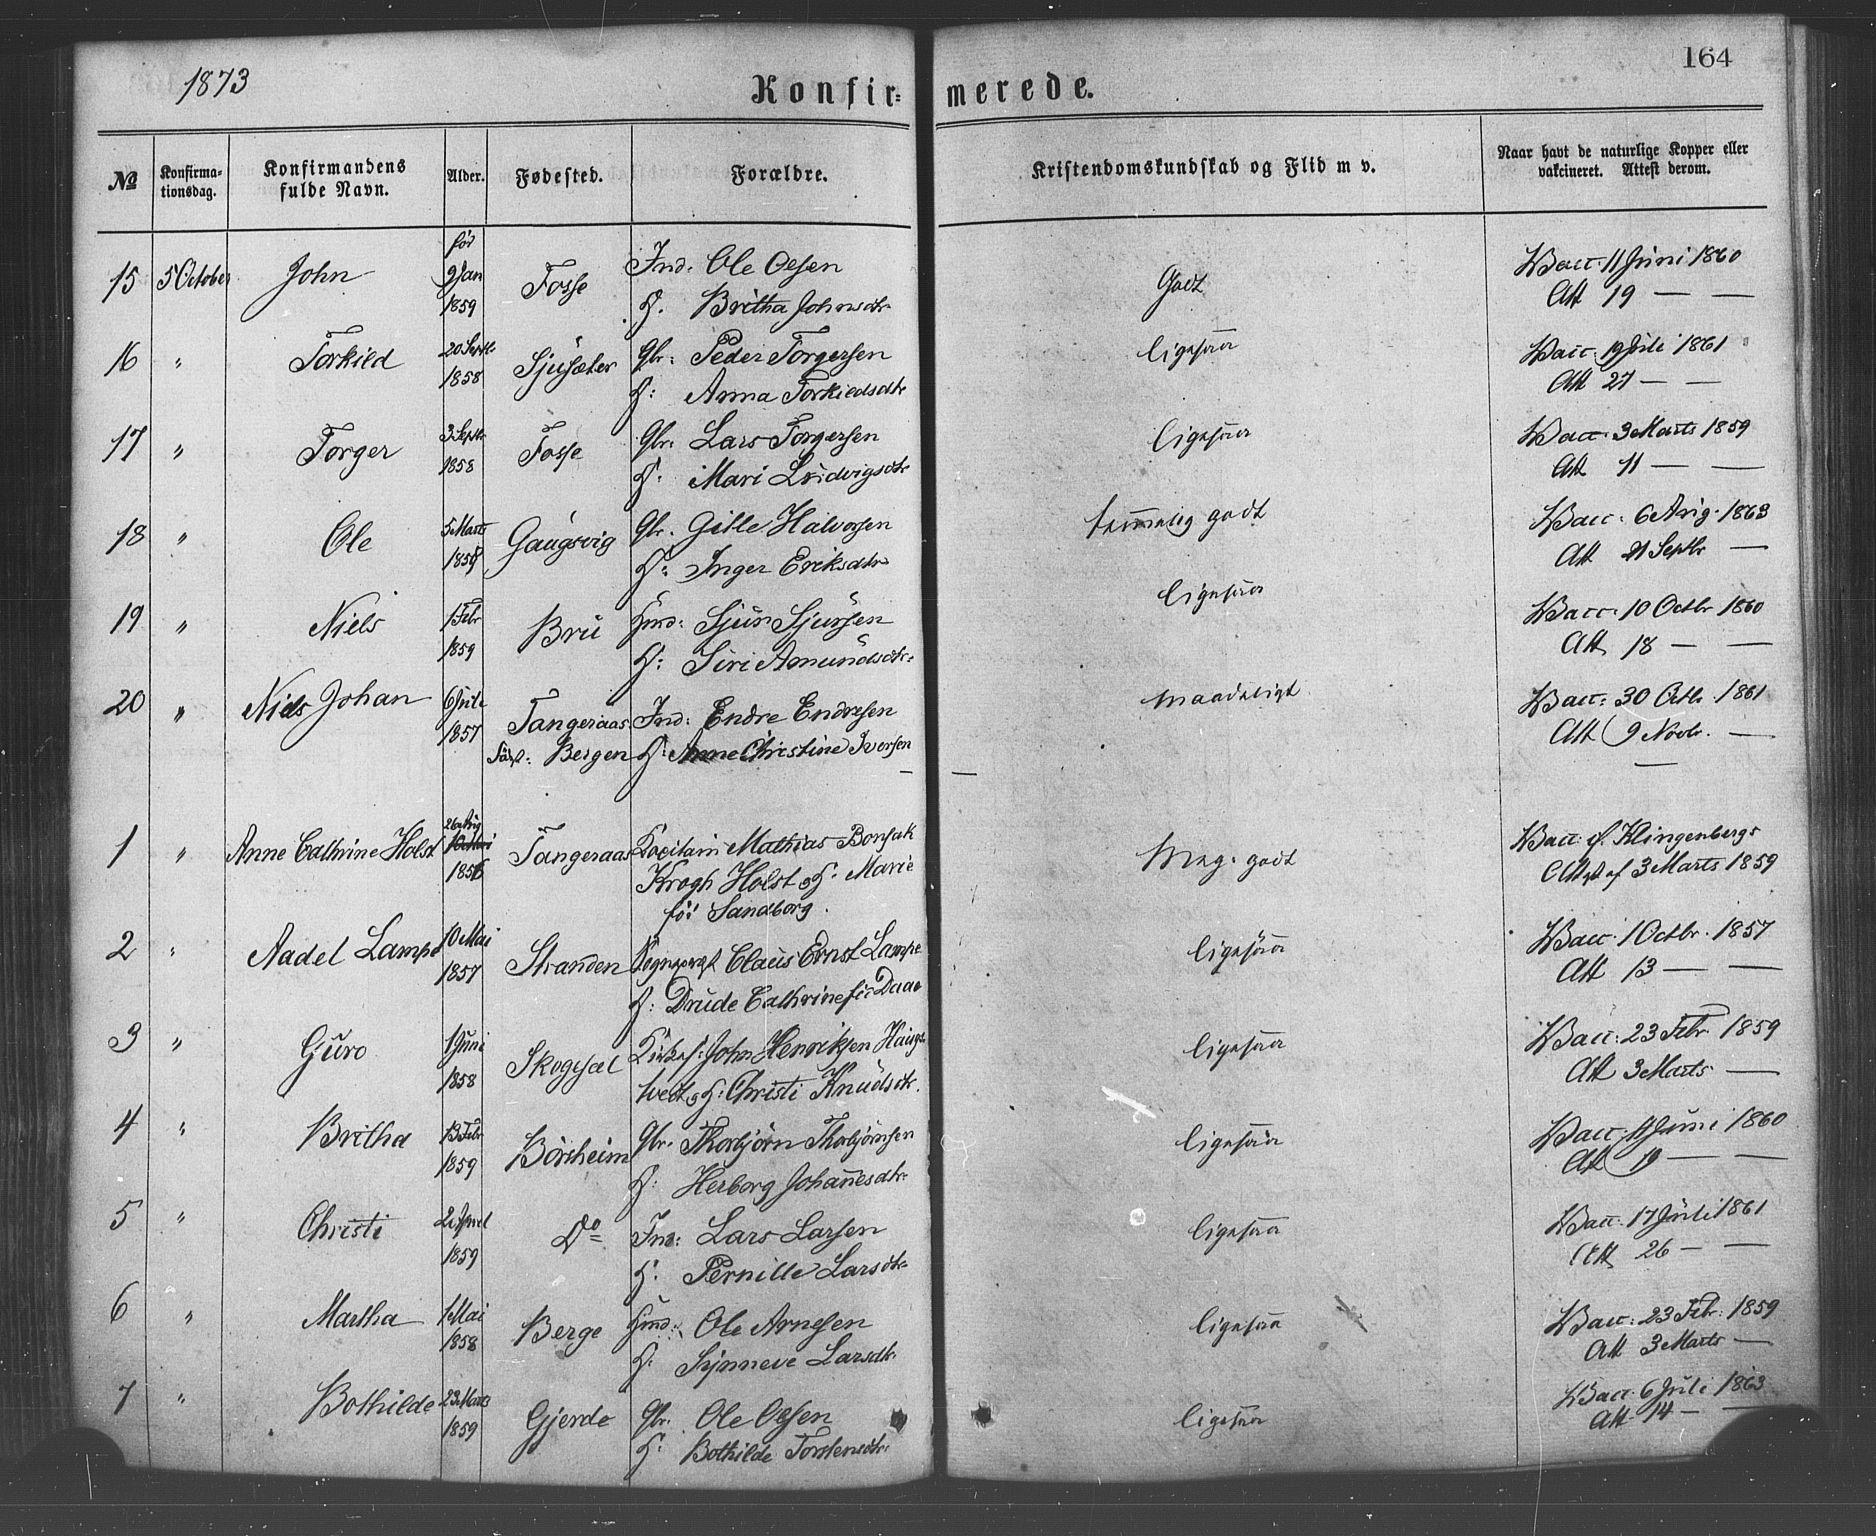 1873
Konfir= merede.
164
No Konfirma-tionsdag. Konfirmandens fulde Navn. Alder. Fødested. Forældre. Kristendomskundskab og Flid m v. Naar havt de naturlige Kopper eller vakcineret. Attest derom.
15 5 October John før 9 Jan 1859 Fosse Ind: Ole Olsen
H. Britha Johnsdtr Godt Vacc. 11 Juni 1860
Att 19 — —
16 " Torkild 20 Septr 1858 Sjusæter Gbr: Peder Torgersen
H: Anna Torkieldsdtr ligesaa Vacc. 19 Juli 1861
Att 27 — —
17 " Torger 3 Septr 1858 Fosse Gbr: Lars Torgersen
H. Mari Ludvigsdtr ligesaa Vacc. 3 Marts 1859
Att 11 — —
18 " Ole 5 Marts Gaugsvig Gbr. Gitle Halvorsen
H: Inger Eriksdtr temmelig godt Vacc. 6 Aug. 1863
Att 21 Septbr —
19 " Niels 1 Febr 1859 Bru Huusm: Sjur Sjursen
H: Siri Amundsdtr. ligesaa Vacc. 10 Octbr 1860
Att 18 — —
20 " Niels Johan 6 Juli 1857 Tangeraas
Bergen Ind: Endre Endresen
H: Anne Christine Iversen maadeligt Vacc: 30 Octbr. 1861
Att 9 Novbr. —
1 " Anne Cathrine Holst 26 Aug 1856 Tangeraas Capitain Mathias Bonsak
Krogh Holst og H. Marie
før Sandborg. Meg. godt Vacc. af Klingenbergs
Att af 3 Marts 1859
2 " Aadel Lampe 10 Mai 1857 Stranden Sogneprest Claus Ernst Lampe
H: Drude Cathrine før Daae ligesaa Vacc. 1 Octbr. 1857
Att 13 — —
3 " Guro 1 Juni 1858 Skogsel Kirkes. John Henriksen Hauge-
tvedt og H: Christi Knudsdtr. ligesaa Vacc. 23 Febr 1859
Att 3 Marts —
4 " Britha 13 Febr 1859 Børsheim Gbr. Thorbjørn Thorbjørnsen
H: Herborg Johannesdtr. ligesaa Vacc. 11 Juni 1860
Att 19 — —
5 " Christi 2 April 1859 Do Ind: Lars Larsen
H. Pernille Larsdtr ligesaa Vacc. 17 Juli 1861
Att 26 — —
6 " Martha 1 Mai 1858 Berge Huusm: Ole Arnesen
H. Synneve Larsdtr. ligesaa Vacc: 23 Febr. 1859
Att 3 Marts —
7 " Bothilde 23 Marts 1859 Gjerde Gbr. Ole Olsen
H: Bothilde Torstensdtr. ligesaa Vacc. 6 Juli 1863
Att 14 — —